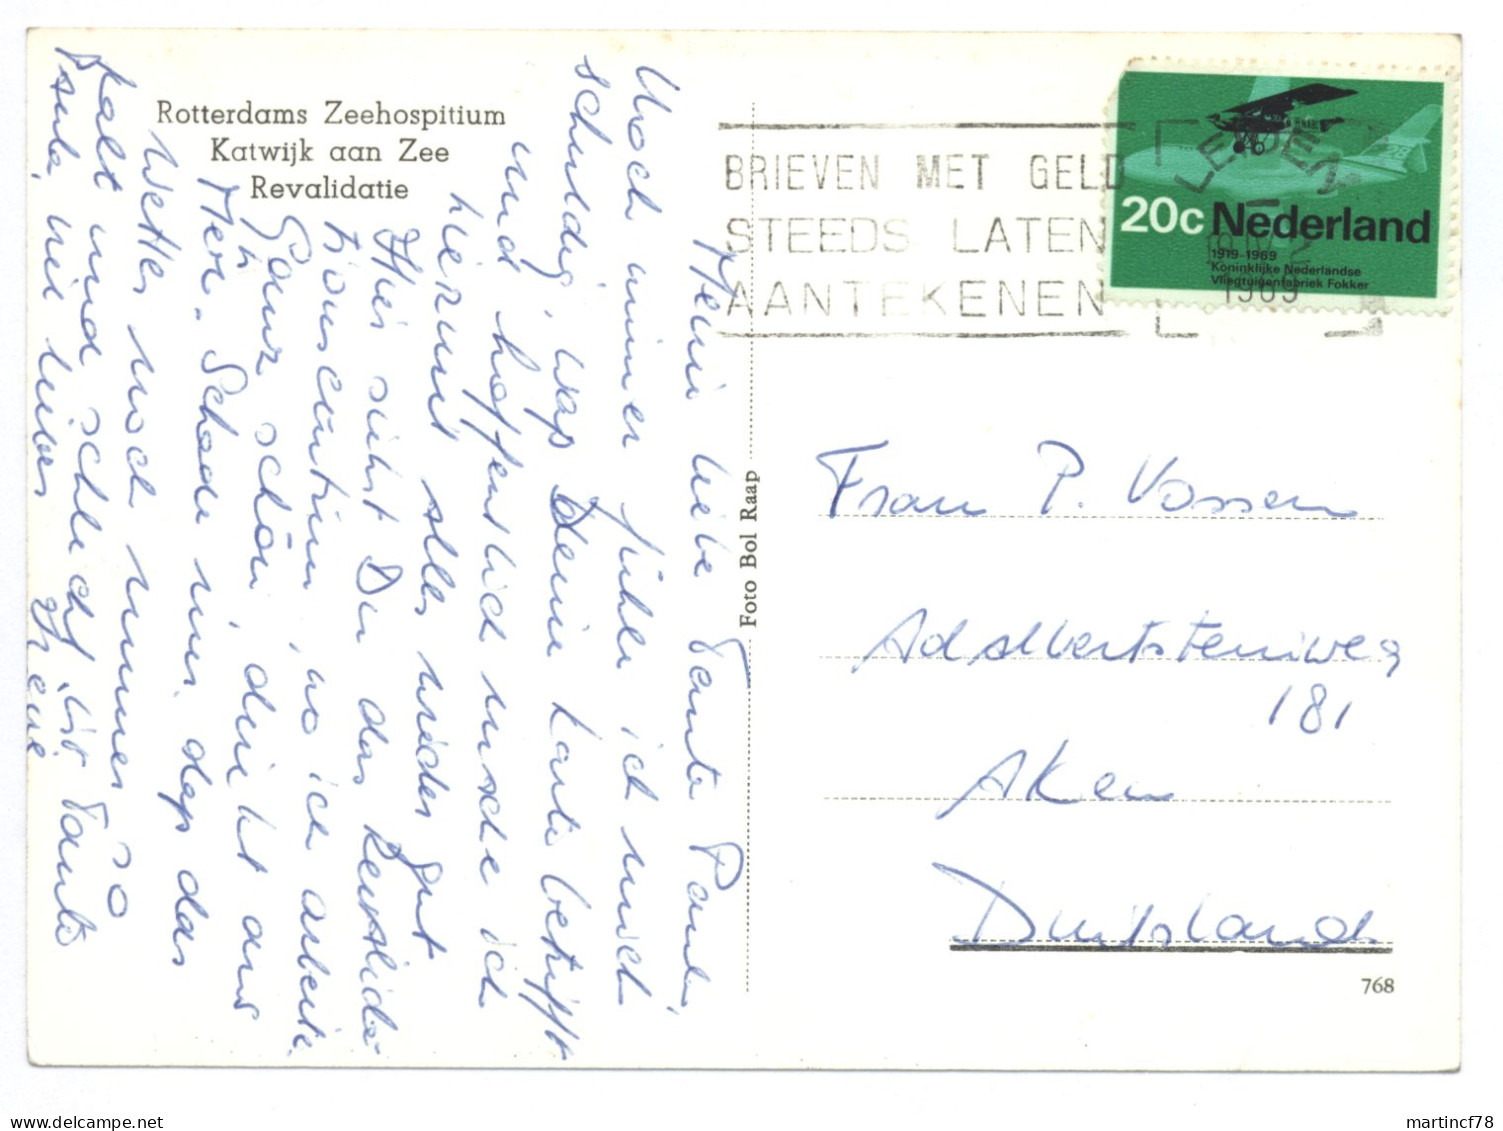 Rotterdams Zeehospitium
Katwijk aan Zee
Revalidatie
Meine liebe Tante Paula,
Noch immer fühle ich mich
schuldig, was Deine Karte betrifft
und hoffentlich mache ich
hiermit alles wieder gut
Hier siehst Du das Revalida-
tionscentrum, wo ich arbeite.
Ganz schön, direkt am
Meer. Schade nur, dass das
Wetter noch immer so
kalt und schlecht ist. Tante
Paula, viele liebe
Grüsse
Foto Bol Raap
BRIEVEN MET GELD
STEEDS LATEN
AANTEKENEN
LEIDEN
1969
20c Nederland
1919-1969
Koninklijke Nederlandse
Vliegtuigenfabriek Fokker
Frau P. Vossen
Adalbertsteinweg
181
Aken
Duitsland
768
delcampe.net
martincf78